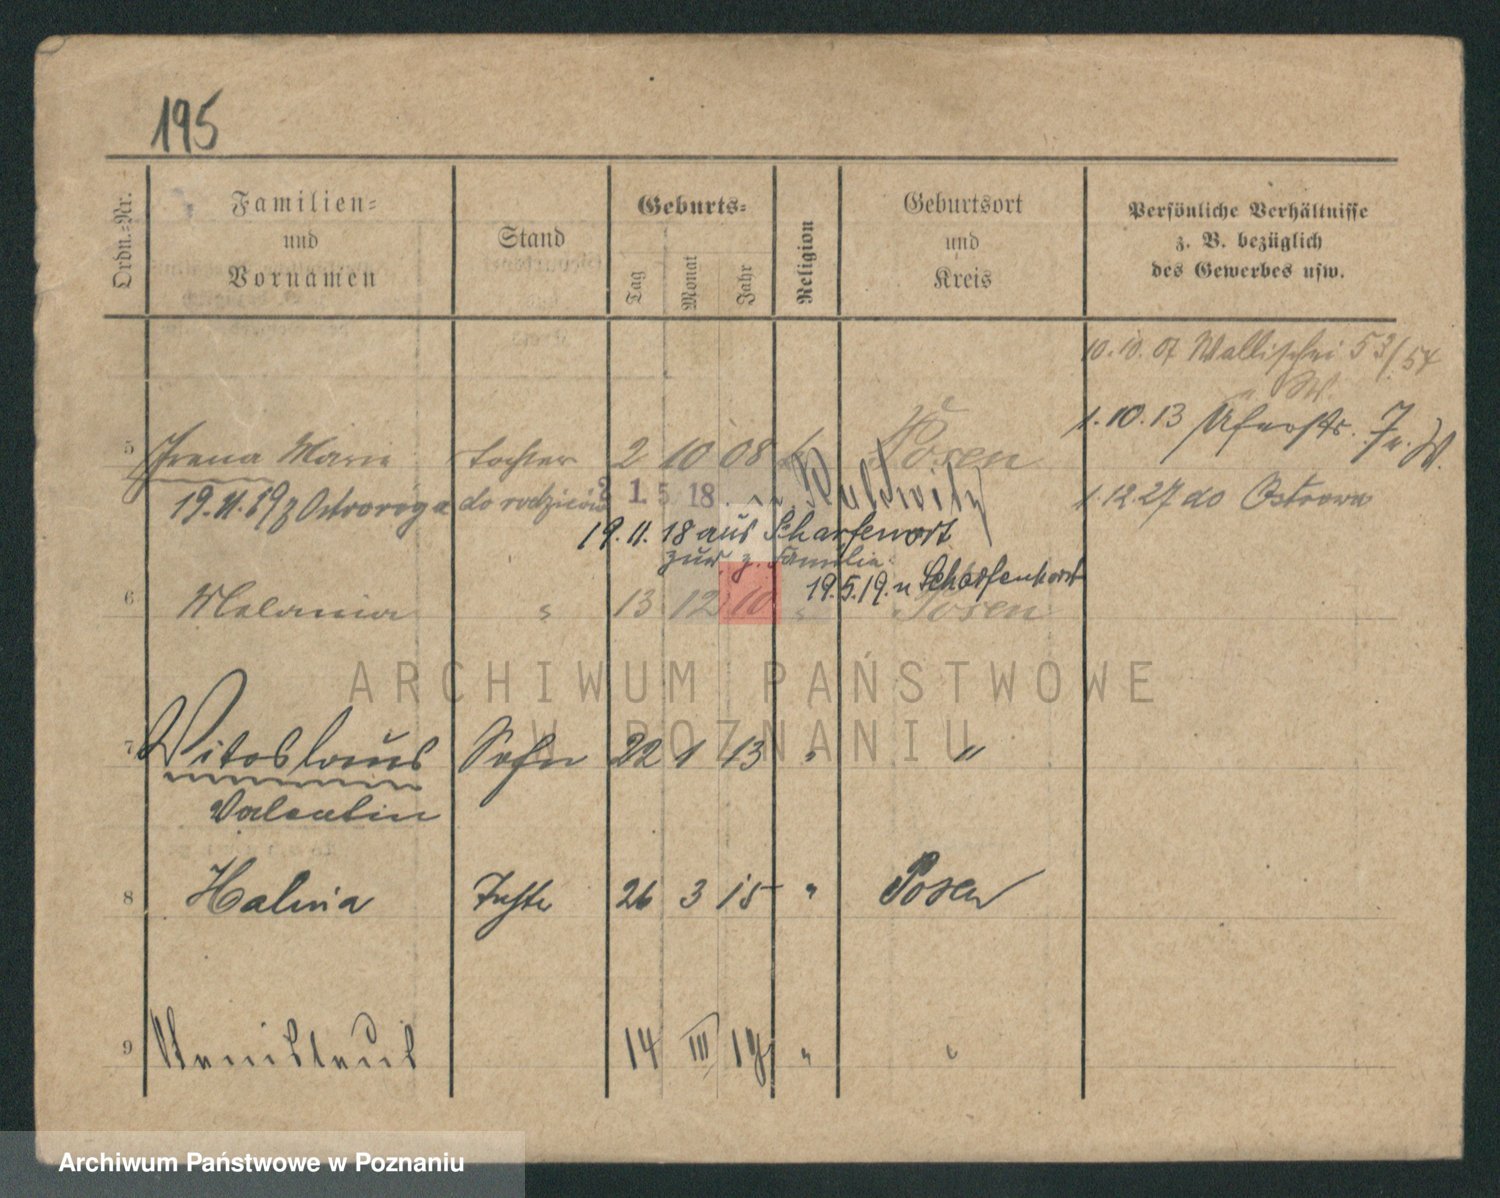 195
Ordn.-Nr.
Familien-
und
Vornamen
Stand
Geburts-
Tag
Monat
Jahr
Religion
Geburtsort
und
Kreis
Persönliche Verhältnisse
z. B. bezüglich
des Gewerbes usw.
10.10.07 Wallischei 53/54
W.
1.10.13 Uferstr. W.
5 Irena Marie Tochter 2 10 08 Posen
19.11.19 z Ostroroga do rodziców 1. 5 18.
1.12.27 do Ostrowa
19.11.18 aus Scharfenort
zur. z. Familie
19.5.19. n Scharfenort
6 Melania " 13 12 10 " Posen
ARCHIWUM PAŃSTWOWE
W POZNANIU
7 Witoslaus Sohn 22 1 13 " "
Valentin
8 Halina Tochter 26 3 15 " Posen
9 14 III 19 " "
Archiwum Państwowe w Poznaniu